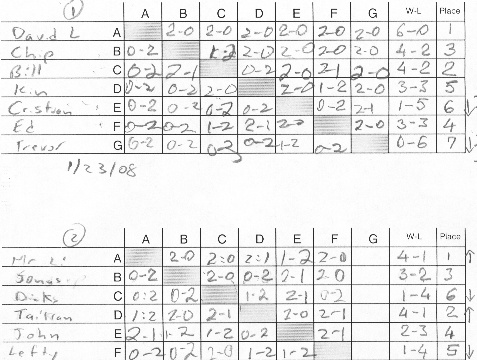 ① A B C D E F G W-L Place
David L A 2-0 2-0 2-0 2-0 2-0 2-0 6-0 1
Chip B 0-2 1-2 2-0 2-0 2-0 2-0 4-2 3
Bill C 0-2 2-1 0-2 2-0 2-1 2-0 4-2 2
Kin D 0-2 0-2 2-0 2-0 1-2 2-0 3-3 5
E 0-2 0-2 0-2 0-2 0-2 2-1 1-5 6 ↓
Ed F 0-2 0-2 1-2 2-1 2-0 2-0 3-3 4
Trevor G 0-2 0-2 0-2 0-2 1-2 0-2 0-6 7 ↓
1/23/08
② A B C D E F G W-L Place
Mr Li A 2-0 2:0 2:1 1-2 2-0 4-1 1 ↑
Jonas B 0-2 2-0 0-2 2-1 2-0 3-2 3
C 0:2 0-2 1-2 2-1 0-2 1-4 6 ↓
D 1:2 2-0 2-1 2-0 2-1 4-1 2 ↑
John E 2-1 1-2 1-2 0-2 2-1 2-3 4
Lefty F 0-2 0-2 2-0 1-2 1-2 1-4 5 ↓